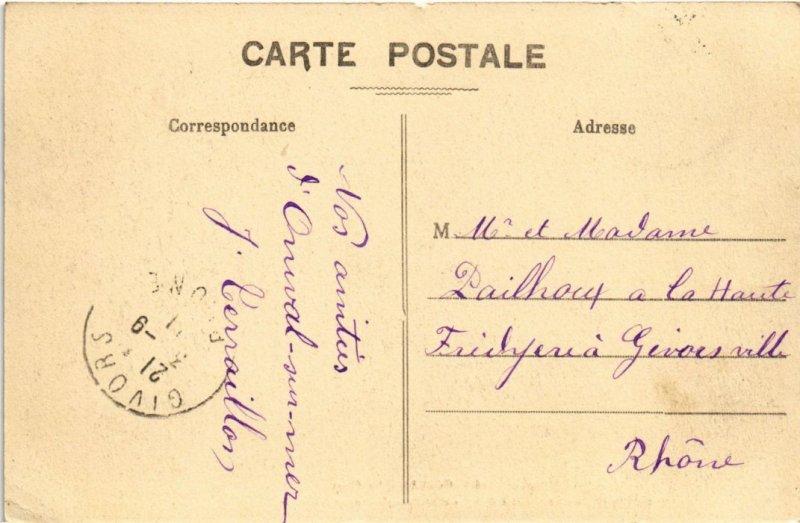 CARTE POSTALE
Correspondance
Adresse
Nos amitiés
d'Onival-sur-mer
J. Terraillon
M Mr et Madame
Pailhoux a la Haute
Fridgerie à Givors ville
Rhône
GIVORS
21
9
RHONE